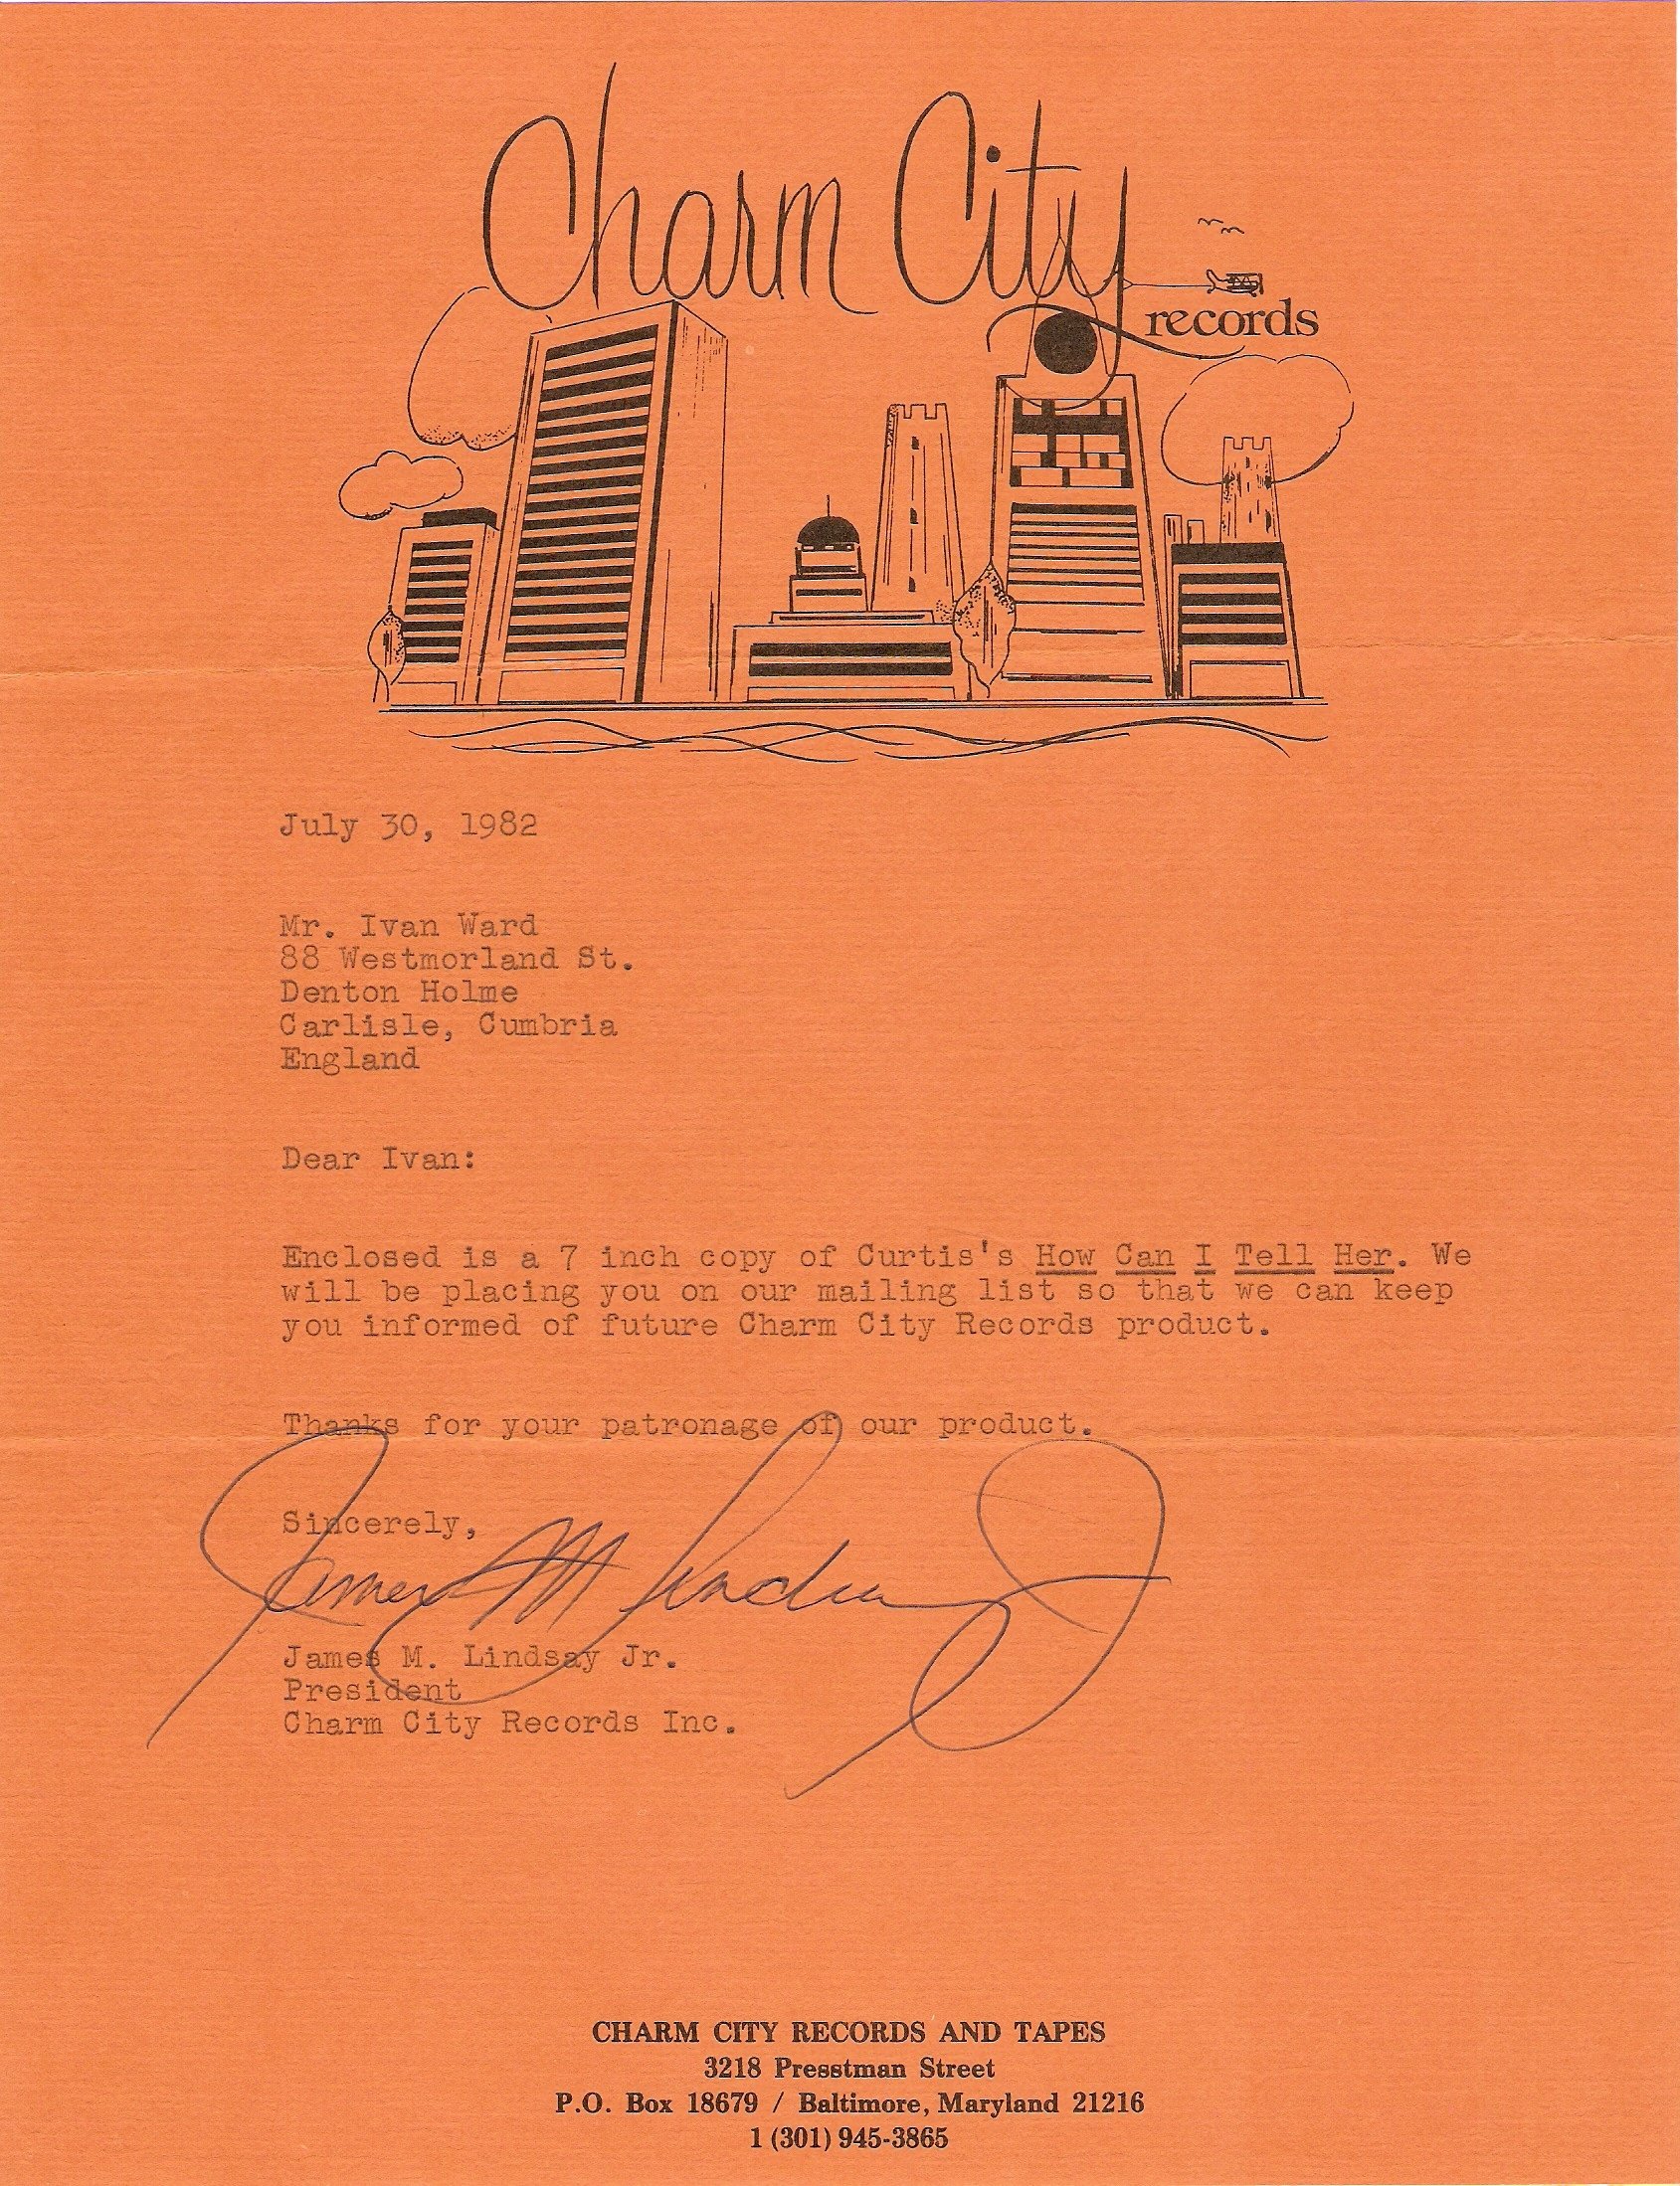 Charm City
records
July 30, 1982
Mr. Ivan Ward
88 Westmorland St.
Denton Holme
Carlisle, Cumbria
England
Dear Ivan:
Enclosed is a 7 inch copy of Curtis's How Can I Tell Her. We
will be placing you on our mailing list so that we can keep
you informed of future Charm City Records product.
Thanks for your patronage of our product.
Sincerely,
James M Lindsay Jr
James M. Lindsay Jr.
President
Charm City Records Inc.
CHARM CITY RECORDS AND TAPES
3218 Presstman Street
P.O. Box 18679 / Baltimore, Maryland 21216
1 (301) 945-3865